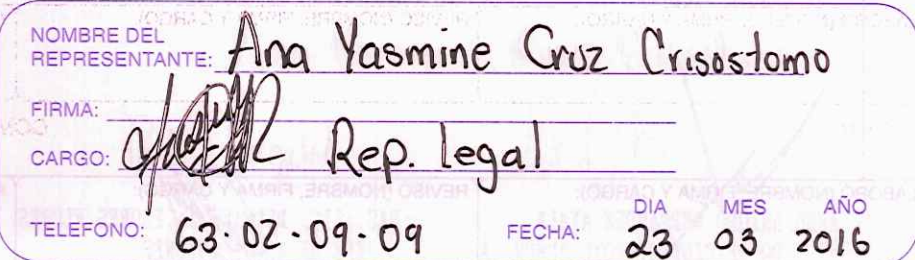 NOMBRE DEL
REPRESENTANTE: Ana Yasmine Cruz Crisostomo
FIRMA:
CARGO: Rep. legal
DIA MES AÑO
TELEFONO: 63-02-09-09 FECHA: 23 03 2016